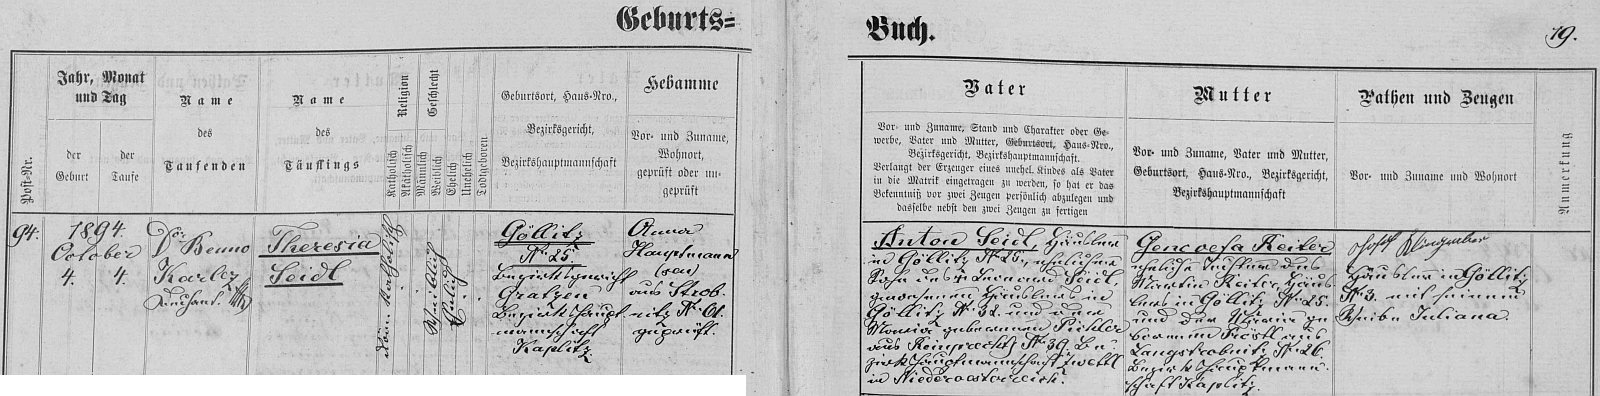 Geburts=
Buch.
19.
Post-Nr.
Jahr, Monat
und Tag
der
Geburt
der
Taufe
Name
des
Taufenden
Name
des
Täuflings
Religion
Katholisch
Akatholisch
Geschlecht
Männlich
Weiblich
Ehelich
Unehelich
Todtgeboren
Geburtsort, Haus-Nro.,
Bezirksgericht,
Bezirkshauptmannschaft
Hebamme
Vor- und Zuname,
Wohnort,
geprüft oder un-
geprüft
Vater
Vor- und Zuname, Stand und Charakter oder Ge-
werbe, Vater und Mutter, Geburtsort, Haus-Nro.,
Bezirksgericht, Bezirkshauptmannschaft.
Verlangt der Erzeuger eines unehel. Kindes als Vater
in die Matrik eingetragen zu werden, so hat er das
Bekenntniß vor zwei Zeugen persönlich abzulegen und
dasselbe nebst den zwei Zeugen zu fertigen
Mutter
Vor- und Zuname, Vater und Mutter,
Geburtsort, Haus-Nro., Bezirksgericht,
Bezirkshauptmannschaft
Pathen und Zeugen
Vor- und Zuname und Wohnort
Anmerkung
94.
1894.
October
4. 4.
Dor Benno
Karlez
Theresia
Seidl
Röm. katholisch
Weiblich
Ehelich
Göllitz
No 25.
Bezirksgericht
Gratzen
Bezirkshaupt-
mannschaft
Kaplitz
Anna
Hauptmann
aus Strob-
nitz No 61.
geprüft.
Anton Seidl, Häusler
in Göllitz No 25, ehelicher
Sohn des Seidl,
gewesenen Häuslers in
Göllitz No 32. und der
Maria geborenen Pichler
aus Reinprechts No 39. Be-
zirkshauptmannschaft Zwettl
in Niederoesterreich.
Genovefa Reiter
eheliche Tochter des
Martin Reiter, Häus-
lers in Göllitz No 25.
und der ge-
borenen aus
Langstrobnitz No 26.
Bezirkshauptmann-
schaft Kaplitz.
Häusler in Göllitz
No 3. mit seinem
Weibe Juliana.